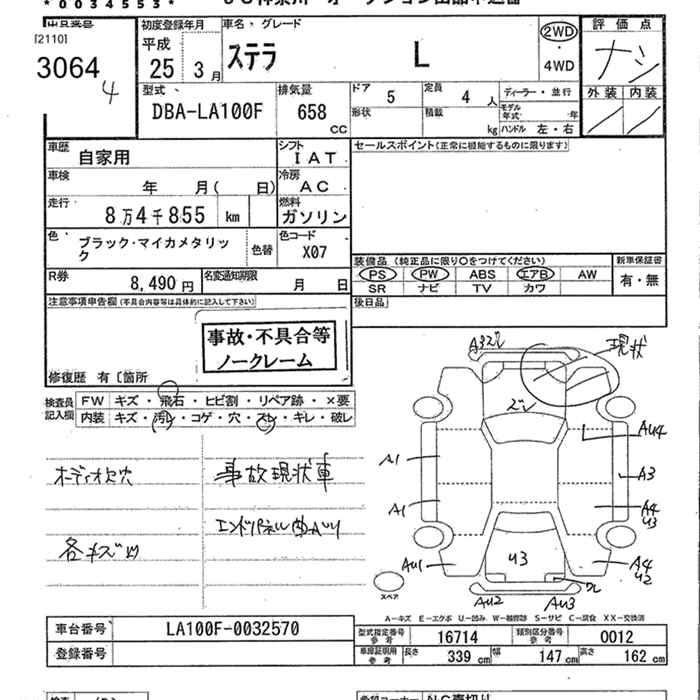 * 0 0 3 4 5 5 3 *
[2110]
3064
4
初度登録年月
平成
25 年 3 月
車名・グレード
ステラ L
2WD
・
4WD
評価点
ナシ
外装 内装
型式
DBA-LA100F
排気量
658
CC
ドア 5
定員 4 人
形状
積載 kg
ディーラー・並行
モデル年式 年
ハンドル 左・右
車歴
自家用
シフト
IAT
セールスポイント(正常に機能するものに限ります)
車検
年 月( 日)
冷房
AC
走行
8万4千855 km
燃料
ガソリン
色
ブラック・マイカメタリック
色替
色コード
X07
装備品(純正品に限り○をつけてください)
新車保証書
PS PW ABS エアB AW
SR ナビ TV カワ
有・無
R券
8,490 円
名変通知期限
月 日
後日品
注意事項申告欄(不具合内容等は具体的に記入して下さい)
事故・不具合等
ノークレーム
修復歴 有〔箇所
検査員記入欄
FW キズ・飛石・ヒビ割・リペア跡・×要
内装 キズ・汚レ・コゲ・穴・スレ・キレ・破レ
オーディオ欠穴
事故現状車
各キズ凹
現状
A1
A1
AU1
AU2
AU3
AU4
A3
A4
U3
A4
U2
U3
スペア
A-キズ E-エクボ U-凹み W-補修跡 S-サビ C-腐食 XX-交換済
車台番号
LA100F-0032570
登録番号
型式指定番号
参考
16714
類別区分番号
参考
0012
車庫証明用
参考
長さ 339 cm 幅 147 cm 高さ 162 cm